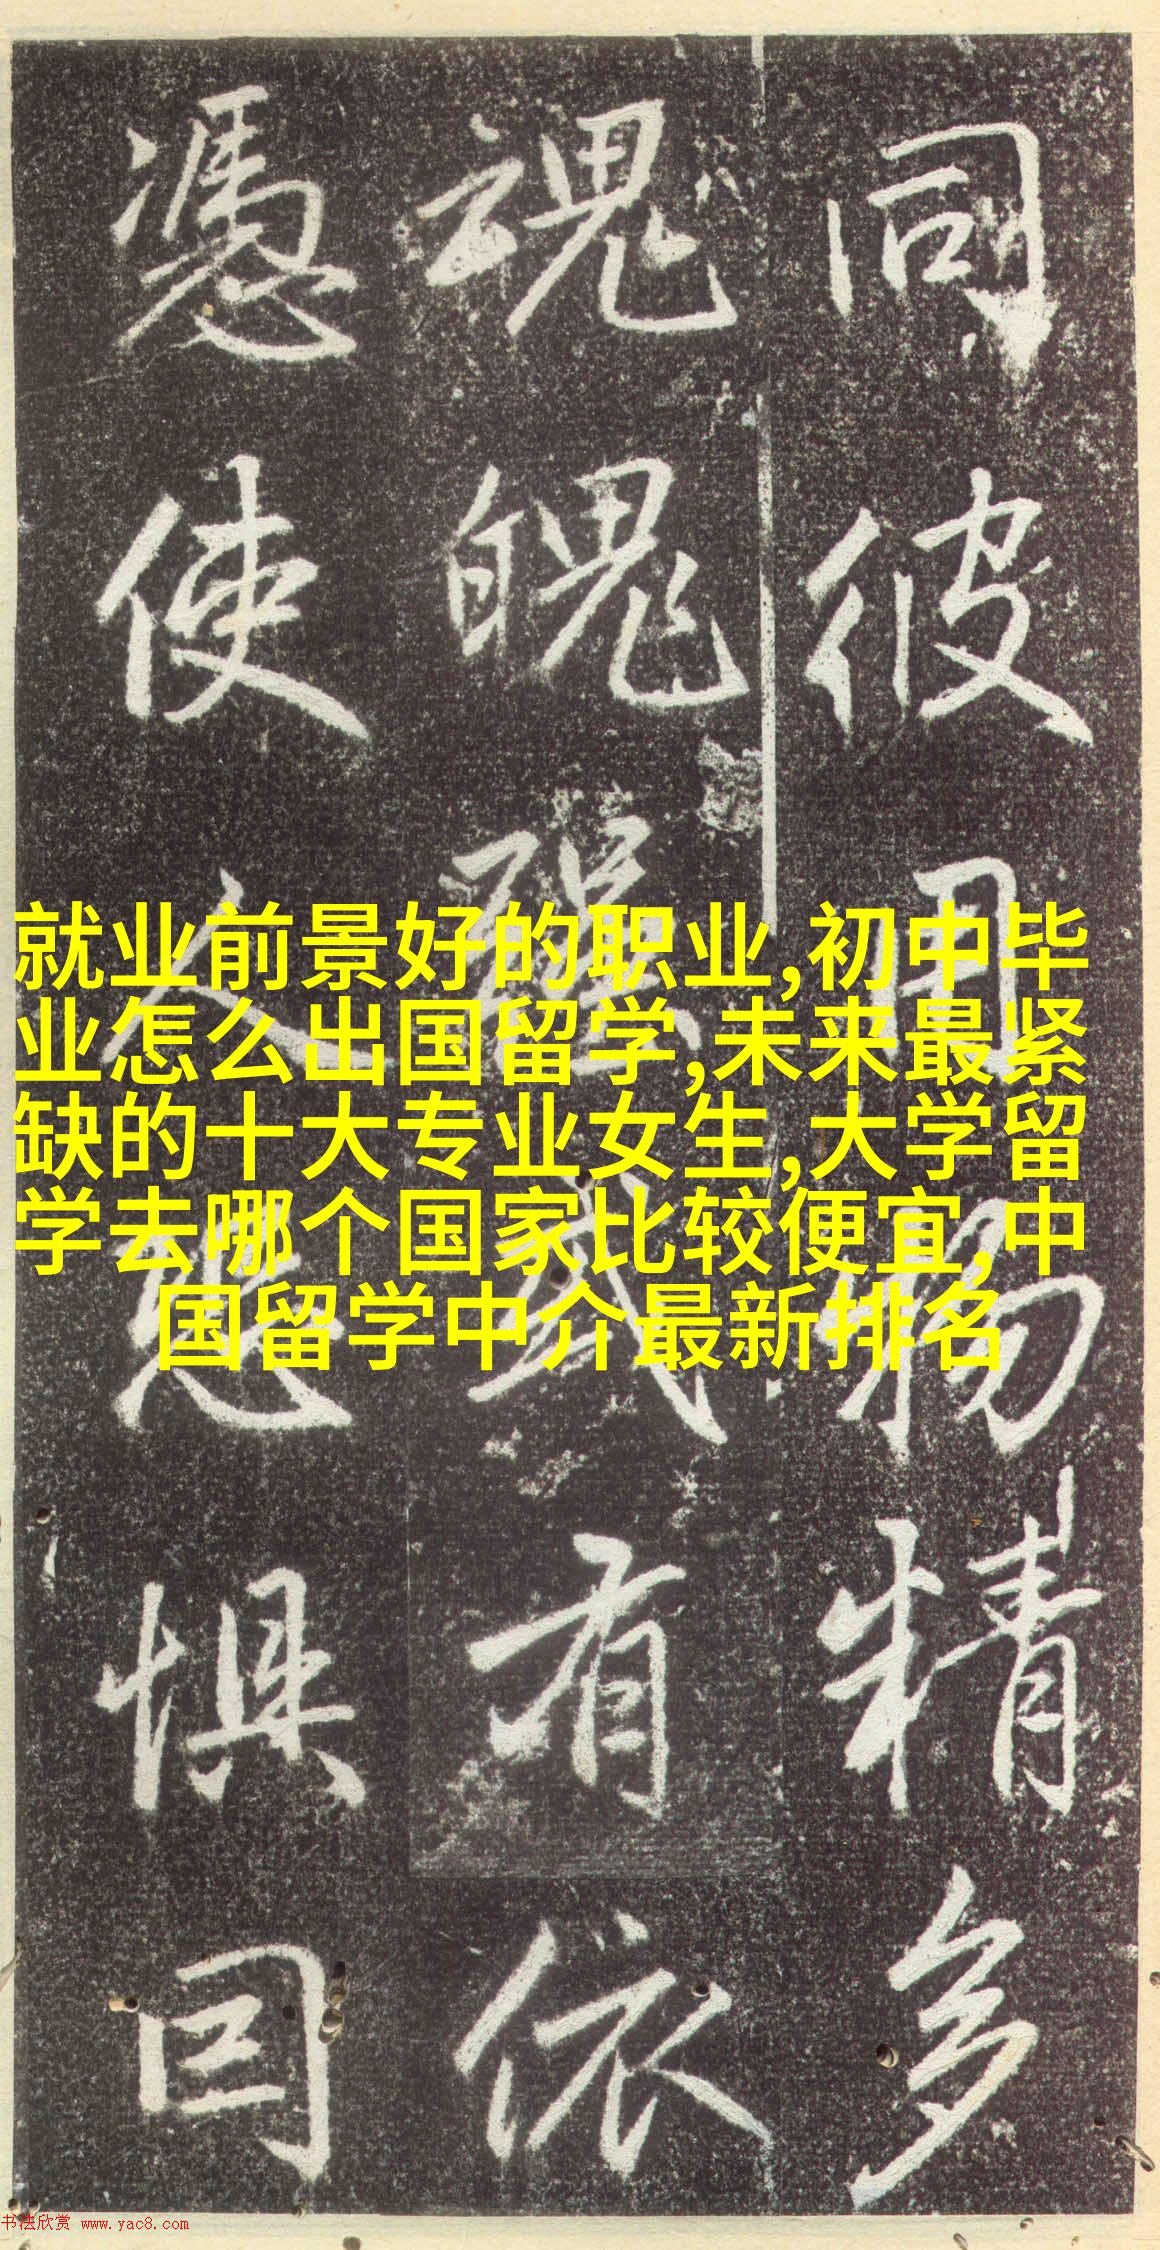 同彼用物精多
魂魄強有依
憑使人懼
就业前景好的职业,初中毕
业怎么出国留学,未来最紧
缺的十大专业女生,大学留
学去哪个国家比较便宜,中
国留学中介最新排名
书法欣赏 www.yac8.com